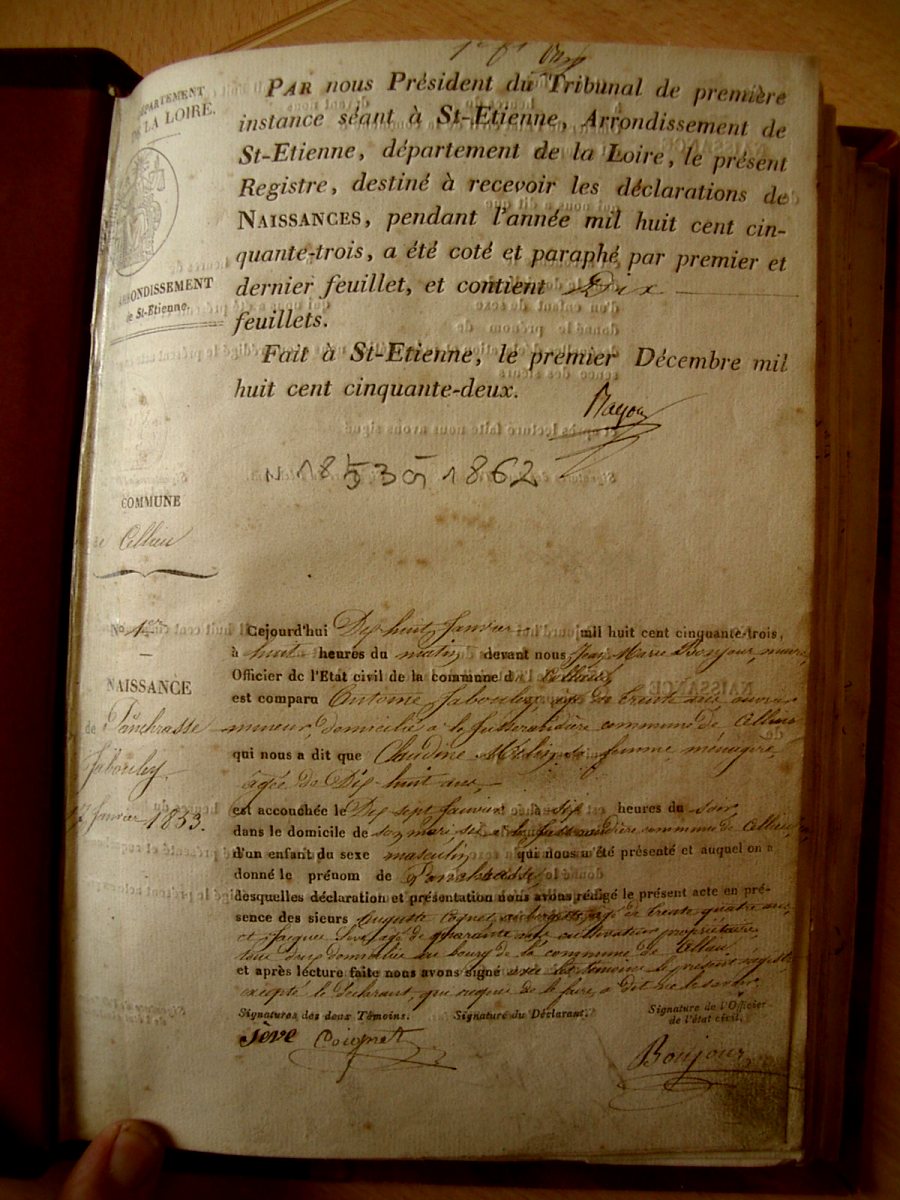 DÉPARTEMENT
DE LA LOIRE.
ARRONDISSEMENT
de St-Etienne.
PAR nous Président du Tribunal de première
instance séant à St-Etienne, Arrondissement de
St-Etienne, département de la Loire, le présent
Registre, destiné à recevoir les déclarations de
NAISSANCES, pendant l'année mil huit cent cin-
quante-trois, a été coté et paraphé par premier et
dernier feuillet, et contient Dix
feuillets.
Fait à St-Etienne, le premier Décembre mil
huit cent cinquante-deux.
N 1853 à 1862
COMMUNE
de Cellieu
No 1er
NAISSANCE
de Panchrasse
Jabouley
17 Janvier 1853.
Cejourd'hui Dix huit Janvier mil huit cent cinquante-trois,
à huit heures du matin devant nous Jean Marie Bonjour, maire,
Officier de l'Etat civil de la commune de Cellieu,
est comparu Antoine Jabouley, agé de trente ans, ouvrier
mineur, domicilié à commune de Cellieu
qui nous a dit que Claudine sa femme, ménagère,
âgée de Dix-huit ans,
est accouchée le Dix sept Janvier à Six heures du soir,
dans le domicile de son mari, sis à commune de Cellieu
d'un enfant du sexe masculin qui nous a été présenté et auquel on a
donné le prénom de Panchrasse,
desquelles déclaration et présentation nous avons rédigé le présent acte en pré-
sence des sieurs Auguste Coignet, agé de trente quatre ans,
et Jacques Sève, agé de quarante ans, cultivateur propriétaire,
tous deux domiciliés au bourg de la commune de Cellieu
et après lecture faite nous avons signé avec les témoins le présent registre
excepté le déclarant, qui requis de le faire, a dit ne le savoir.
Signatures des deux Témoins.
Signature du Déclarant.
Signature de l'Officier
de l'état civil.
Sève Coignet
Bonjour